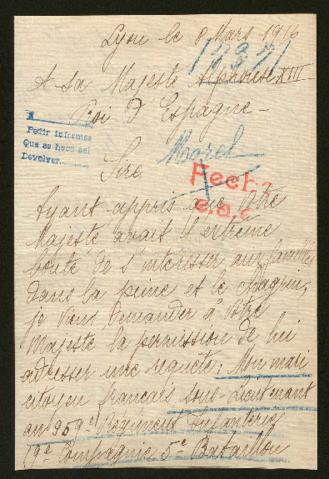 Lyon le 8 Mars 1916
A Sa Majesté Alphonse XIII
Roi d'Espagne -
Pedir informes
Que se hace así
Devolver
Morel
Sire
Fecha
Ayant appris que Votre
Majesté avait l'extrême
bonté de s'intéresser aux familles
dans la peine et le chagrin,
je viens demander à Votre
Majesté la permission de lui
adresser une requête; Mon mari
citoyen français sous-Lieutenant
au Régiment Infanterie
19e Compagnie 5e Bataillon